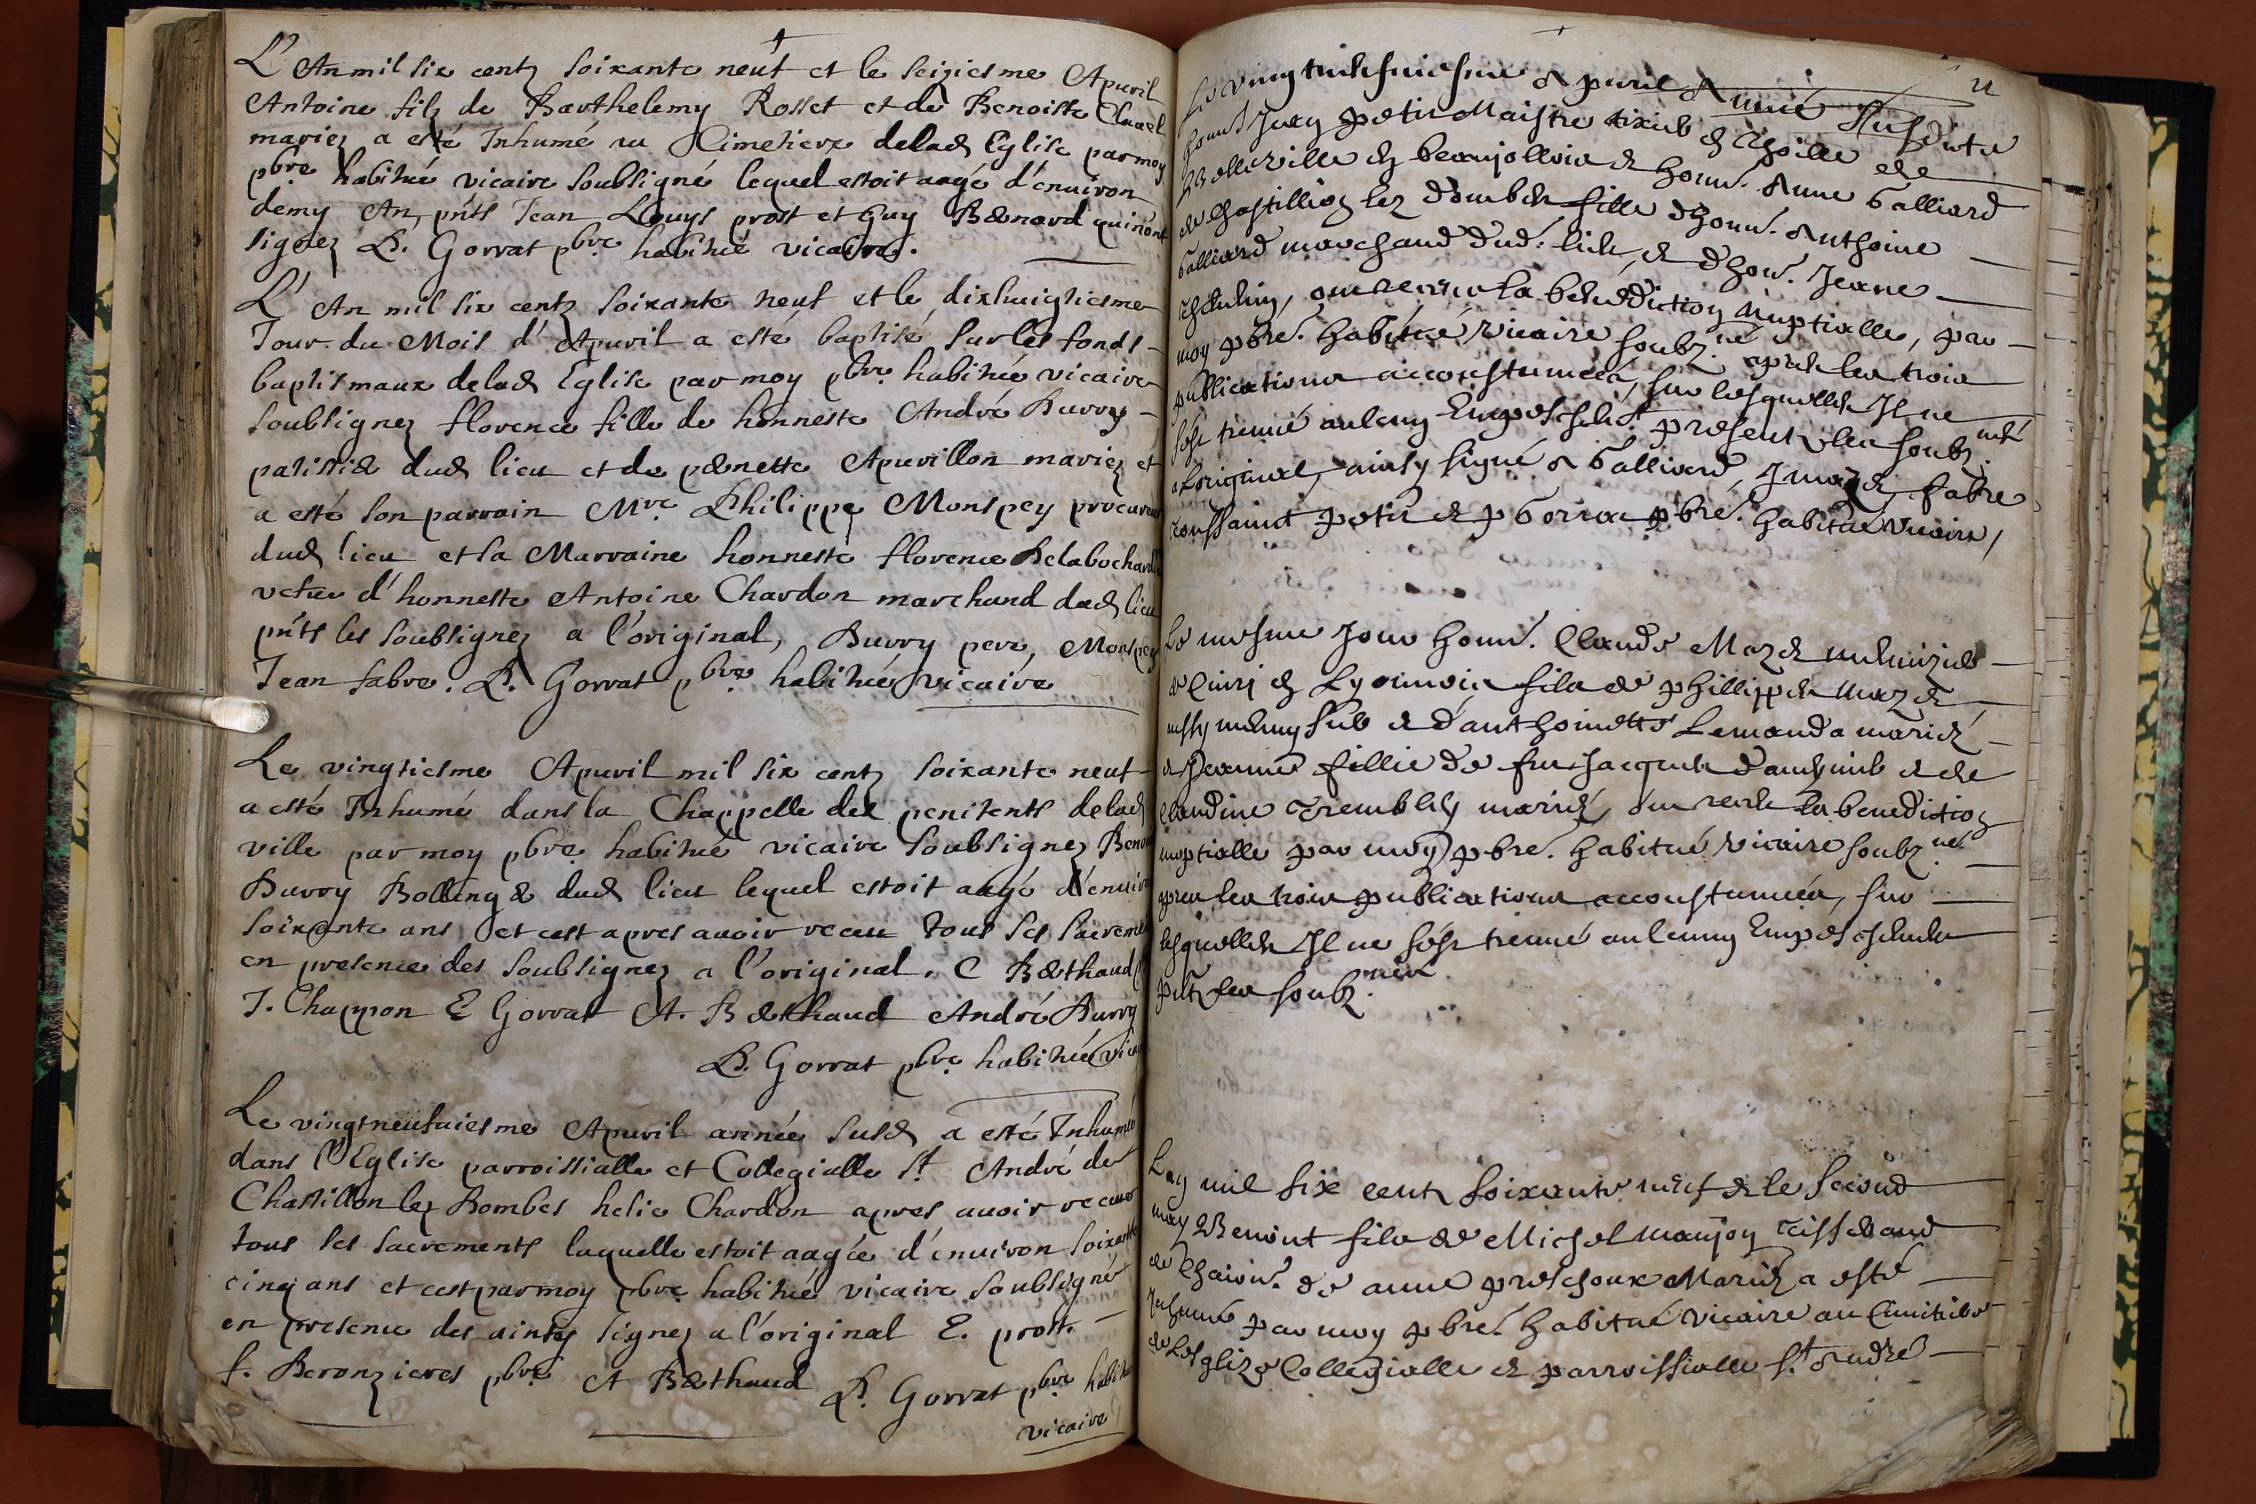 L'An mil six centz soixante neuf et le seiziesme Apuril
Antoine filz de Barthelemy Rosset et de Benoiste Clauel
mariez a esté Inhumé au Cimetiere delad Eglise par moy
pbre habitué vicaire soubsigné lequel estoit aagé d'enuiron
demy An, pnts Jean Louys prost et Guy Benard qui n'ont
signez P. Gorrat pbre habitué vicaire.
L'An mil six centz soixante neuf et le dixhuigtiesme
Jour du Mois d'Apuril a esté baptisé sur les fonds
baptismaux delad Eglise par moy pbre habitué vicaire
soubsignez florence fille de honneste André Burry
patissier dud lieu et de pernette Apurillon mariez et
a esté son parrain Mre Philippe Monspey procureur
dud lieu et la Marraine honneste florence Delabochard
vefue d'honneste Antoine Chardon marchand dud lieu
pnts les soubsignez a l'original, Burry pere, Monspey
Jean fabre. P. Gorrat pbre habitué vicaire
Le vingtiesme Apuril mil six centz soixante neuf
a esté Inhumé dans la Chappelle des penitents delad
ville par moy pbre habitué vicaire soubsignez Benoit
Burry Bollenger dud lieu lequel estoit aagé d'enuiron
soixante ans et cest apres auoir receu tous ses sacrements
en presence des soubsignez a l'original. C Berthaud
J. Chappon E Gorrat A. Berthaud André Burry
P. Gorrat pbre habitué vicaire
Le vingtneufuiesme Apuril année susd a esté Inhumée
dans l'Eglise parroissialle et Collegialle st André de
Chastillon lez Dombes helie Chardon apres auoir receu
tous ses sacrements laquelle estoit aagée d'enuiron soixante
cinq ans et cest par moy pbre habitué vicaire soubsigné
en presence des ainsy signez a l'original E. prost.
f. Beronzieres pbre A Berthaud P. Gorrat pbre habitué
vicaire
Le vingt neufuiesme Apuril Année susdicte
honn. petit Maistre
Belleville en beaujollois et honn. Anne Galliard
de Chastillion lez dombes fille d'honn. Anthoine
Galliard marchand dud. lieu, et d'hon. Jeane
ont receu la benediction nuptialle, par
moy pbre. habitué vicaire soubz.né apres les trois
publications accoustumées, sur lesquelles Il ne
sest treuué aulcung Empeschet. presentz les soubz.nés
a l'original, ainsy signé A Galliard, J mazet fabre
toussainct petit et P Gorrat pbre. habitué vicaire,
Le mesme Jour honn. Claude Mazet
de en Lyonnois filz de phillippes Mazet
et d'anthoinette mariez
et Jeanne fillie de feu Jacques et de
Claudine Trembley mariez, ont receu la benediction
nuptialle par moy pbre. habitué vicaire soubz.né
apres les trois publications accoustumées, sur
lesquelles Il ne sest treuué aulcung Empeschement
pntz les soubz.nés
L'an mil six centz soixante neuf et le second
may Benoist filz de Michel manjon Tisserand
de anne Mariez a esté
Inhumé par moy pbre. habitué vicaire au Cimitiere
de Lesglize Collegialle et parroissialle st André